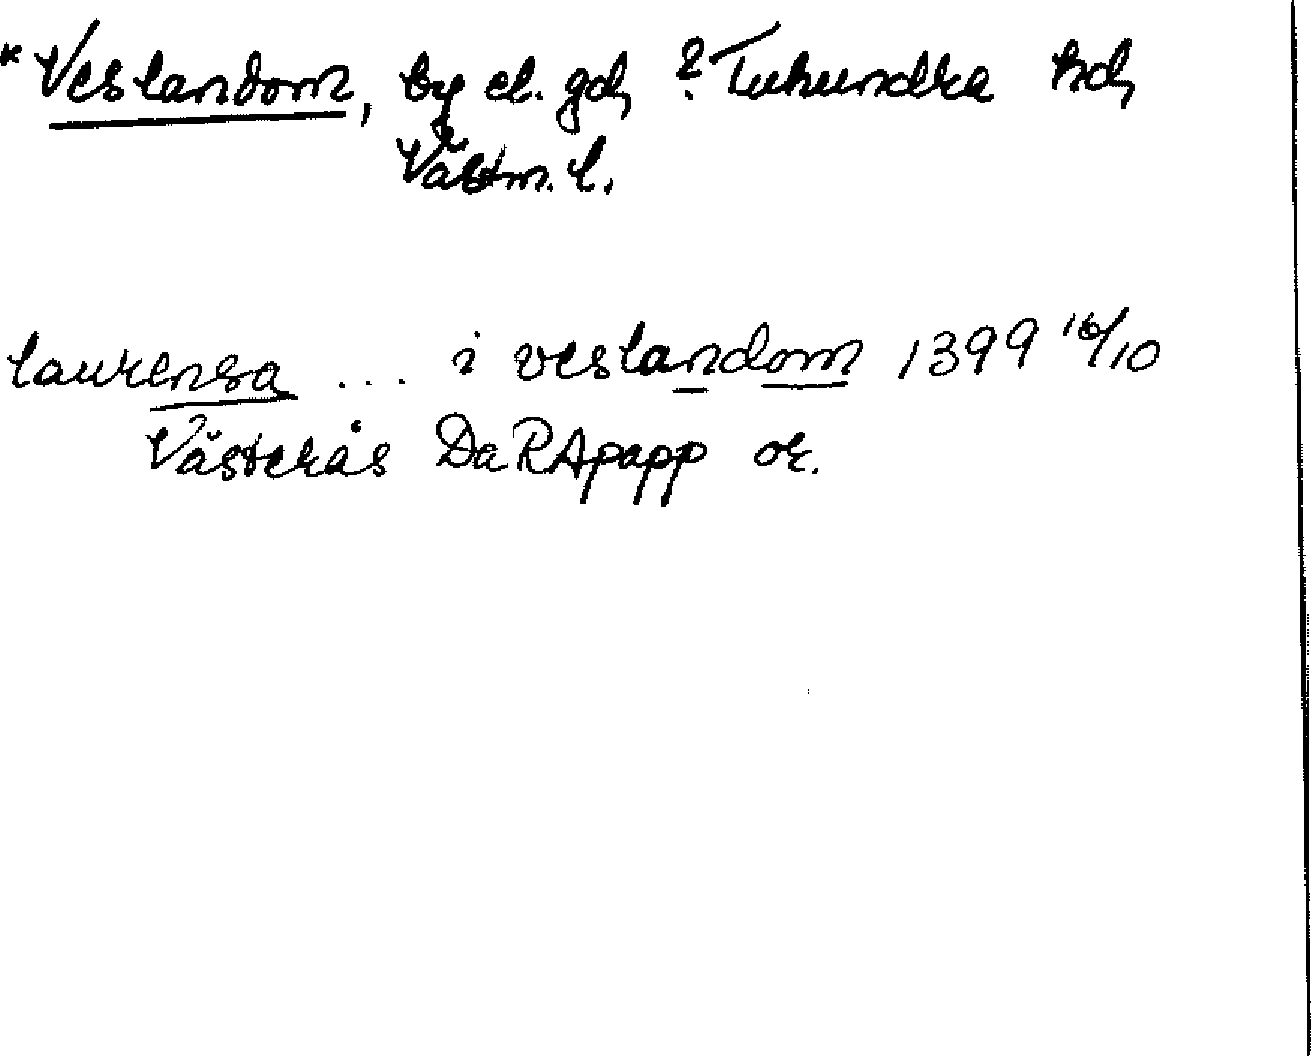 *Veslandom, by el. gd, ? Tuhundra hd,
Västm. l.
laurensa ... i veslandom 1399 16/10
Västerås DaRApapp or.